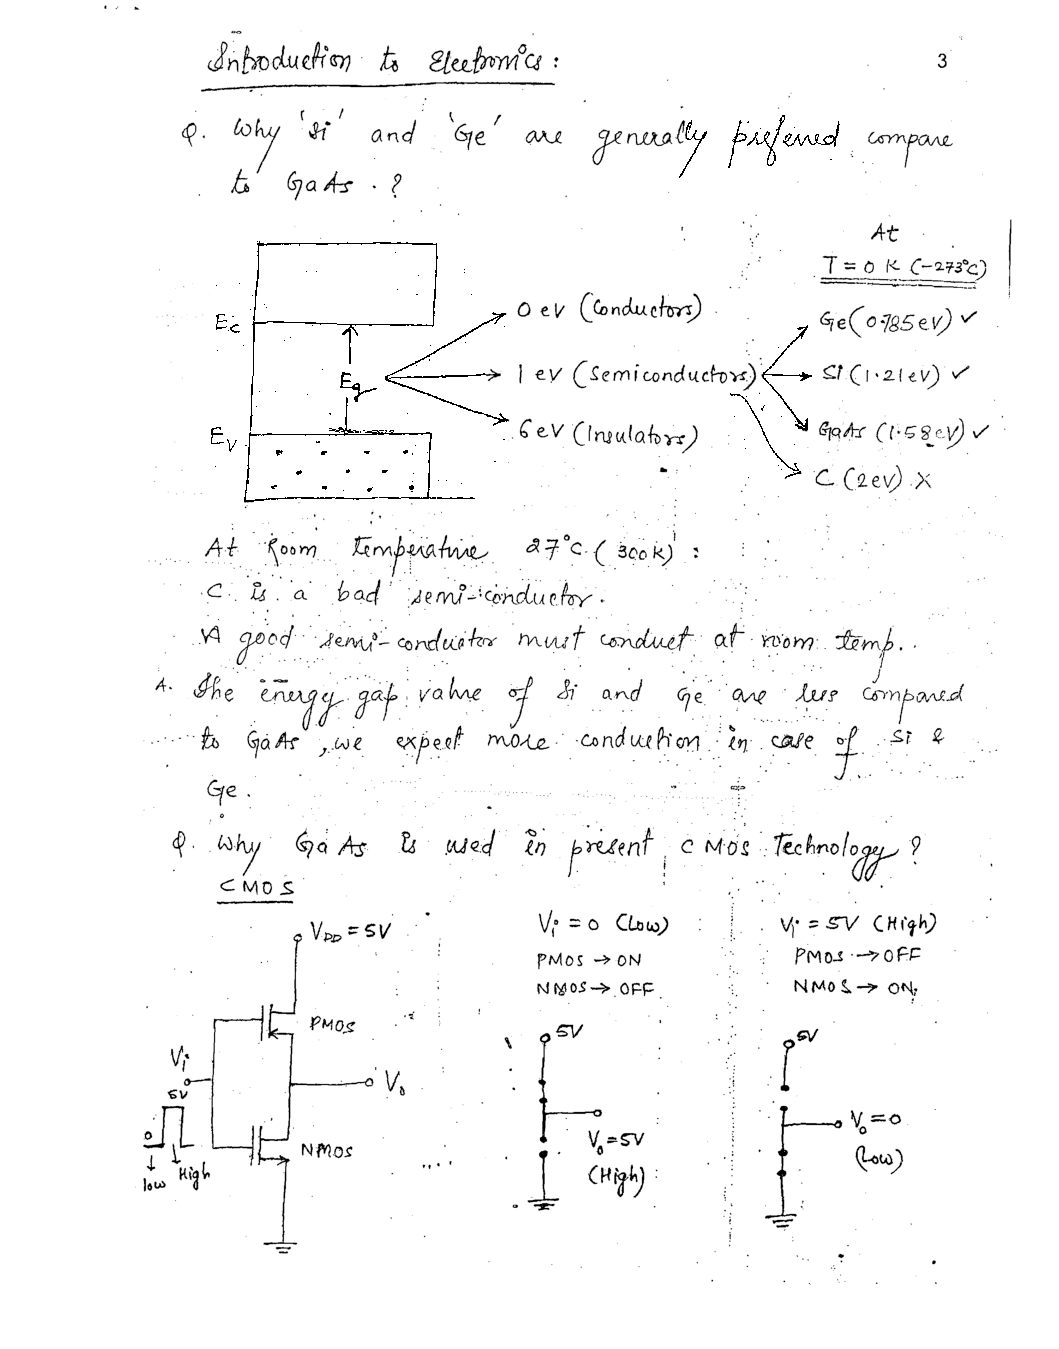 Introduction to Electronics :
3
Q. Why 'Si' and 'Ge' are generally preferred compare
to GaAs . ?
At
T = 0 K (-273°C)
Ec
Eg
Ev
0 ev (Conductors)
1 ev (Semiconductors)
6 ev (Insulators)
Ge (0.785 ev) ✓
Si (1.21 ev) ✓
GaAs (1.58 ev) ✓
C (2ev) X
At Room Temperature 27°C ( 300K) :
C is a bad semi-conductor.
A good semi-conductor must conduct at room temp.
A. The energy gap value of Si and Ge are less compared
to GaAs , we expect more conduction in case of Si &
Ge .
Q. Why GaAs is used in present CMOS Technology ?
CMOS
VDD = 5V
PMOS
Vi
5V
0
low
High
Vo
NMOS
Vi = 0 (Low)
PMOS → ON
NMOS → OFF
5V
Vo = 5V
(High)
Vi = 5V (High)
PMOS → OFF
NMOS → ON
5V
Vo = 0
(Low)